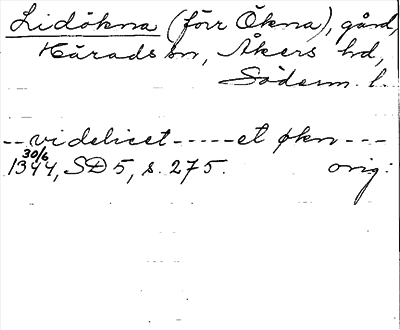 Lidökna (förr Ökna), gård,
Härads sn, Åkers hd,
Söderm. l.
-- videlicet ----- et økn ---
30/6
1344, SD 5, s. 275. orig: